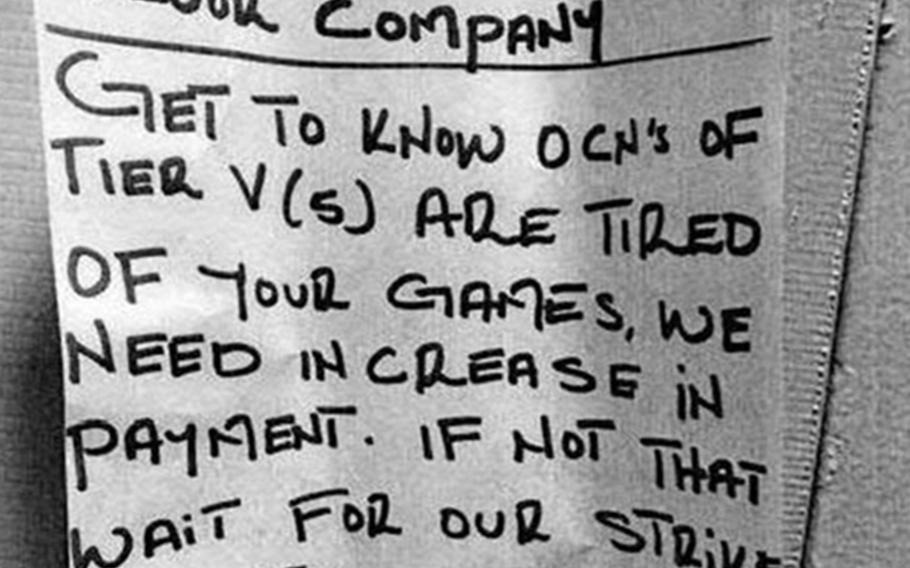 COMPANY
GET TO KNOW OCN'S OF
TIER V(S) ARE TIRED
OF YOUR GAMES, WE
NEED INCREASE IN
PAYMENT. IF NOT THAT
WAIT FOR OUR STRIKE